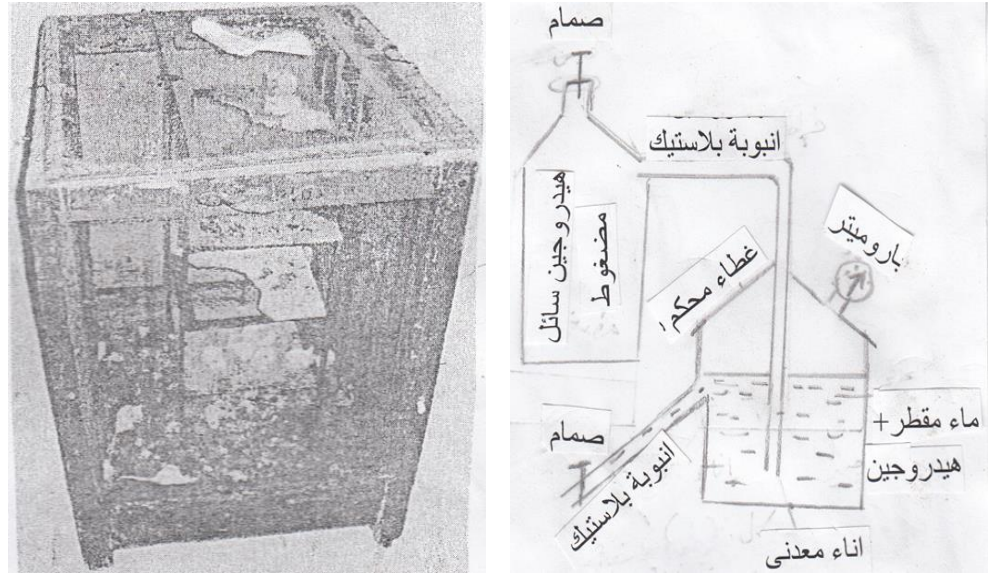 صمام
انبوبة بلاستيك
هيدروجين سائل
مضغوط
باروميتر
غطاء محكم
ماء مقطر+
هيدروجين
صمام
انبوبة بلاستيك
اناء معدنى